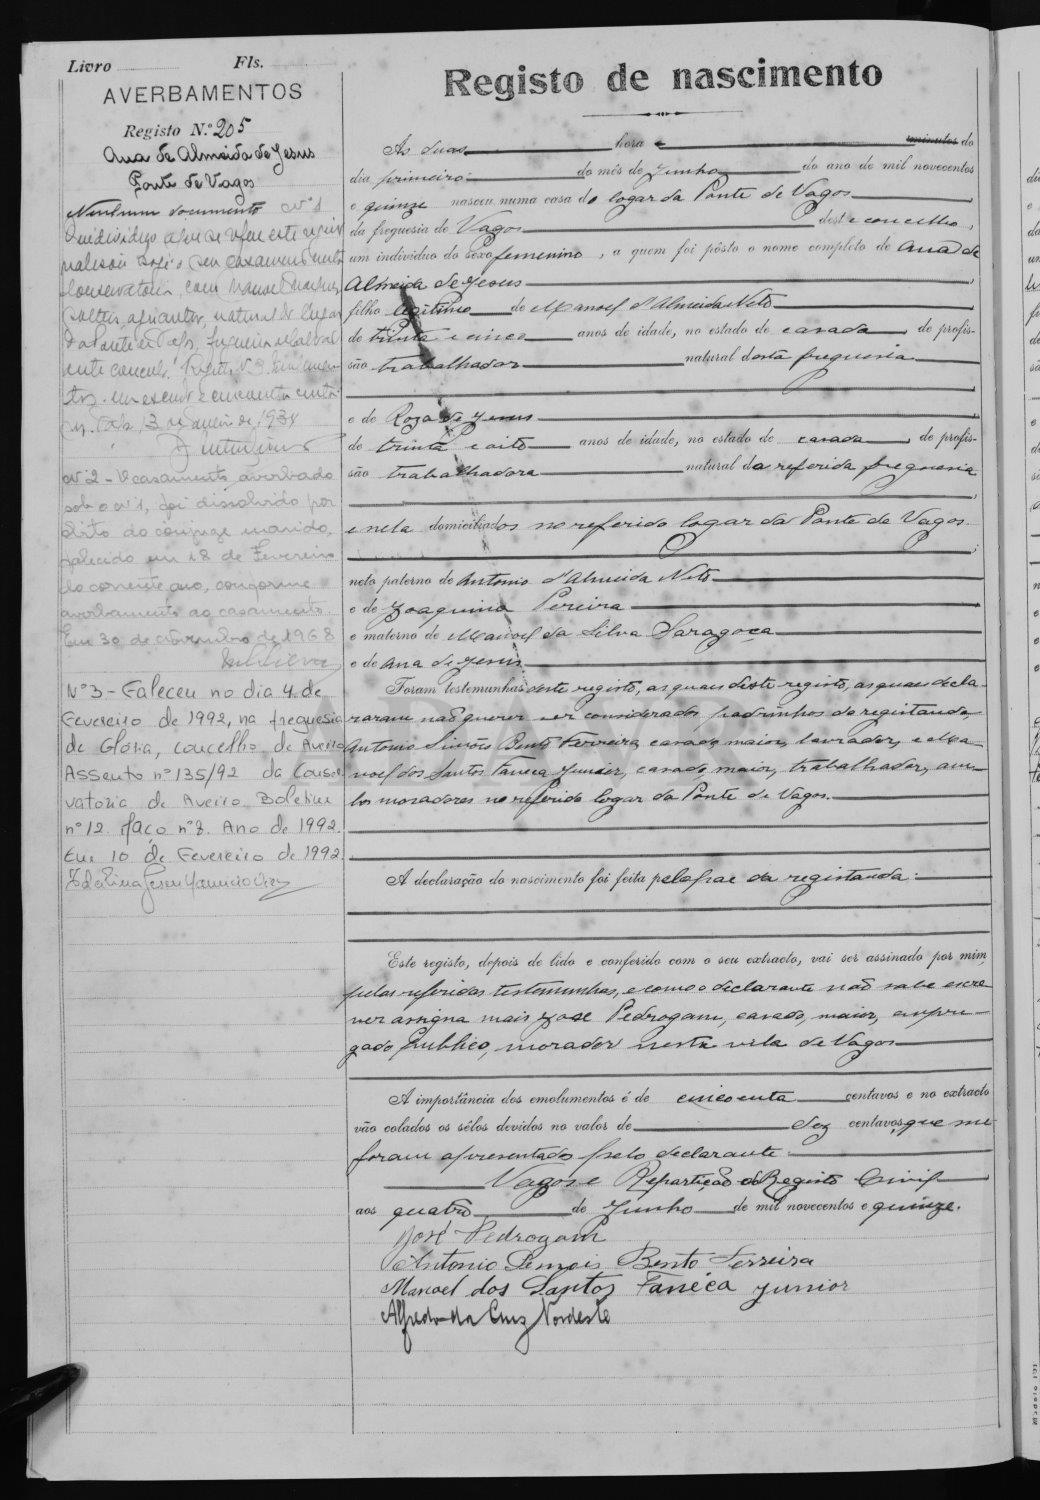 Livro Fls.
AVERBAMENTOS
Registo N.º 205
Ana de Almeida de Jesus
Ponte de Vagos
Nenhum documento Nº 1
O individuo a que se refere este regis
casamento
Conservatoria, com Manuel
solteiro, natural do lugar
da Ponte de Vagos, freguesia
concelho
cincoenta
13 de 1934
Nº 2 - O casamento averbado
sob o nº 1, foi dissolvido por
óbito do cônjuge marido,
falecido em 18 de Fevereiro
do corrente ano, conforme
averbamento ao casamento.
Em 30 de Novembro de 1968
Nº 3 - Faleceu no dia 4 de
Fevereiro de 1992, na freguesia
de Glória, concelho de Aveiro
Assento nº 135/92 da Conser
vatoria de Aveiro. Boletim
nº 12. Maço nº 8. Ano de 1992.
Em 10 de Fevereiro de 1992.
Registo de nascimento
As duas hora e minutos do
dia primeiro do mês de Junho do ano de mil novecentos
e quinze nasceu numa casa do logar da Ponte de Vagos
da freguesia de Vagos deste concelho,
um individuo do sexo femenino, a quem foi pôsto o nome completo de Ana de
Almeida de Jesus
filho legitimo de Manoel d'Almeida Neto
de trinta e cinco anos de idade, no estado de casado, de profis-
são trabalhador natural desta freguesia
e de Roza de Jesus
de trinta e oito anos de idade, no estado de casada, de profis-
são trabalhadora natural da referida freguesia
e nela domiciliados no referido logar da Ponte de Vagos.
neto paterno de Antonio d'Almeida Neto
e de Joaquina Pereira
e materno de Manoel da Silva Saragoça
e de Ana de Jesus
Foram testemunhas deste registo, as quaes deste registo, as quaes decla-
raram não querer ser considerados padrinhos da registanda,
Antonio Simões Bento Ferreira, casado, maior, lavrador, e Ma-
noel dos Santos Faneca Junior, casado, maior, trabalhador, am-
bos moradores no referido logar da Ponte de Vagos.
A declaração do nascimento foi feita pelo pae da registanda.
Este registo, depois de lido e conferido com o seu extracto, vai ser assinado por mim,
pelas referidas testemunhas, e como o declarante não sabe escre
ver assigna mais José Pedrogam, casado, maior, empre-
gado publico, morador nesta vila de Vagos
A importância dos emolumentos é de cincoenta centavos e no extracto
vão colados os sêlos devidos no valor de dez centavos, que me
foram apresentados pelo declarante.
Vagos e Repartição do Registo Civil
aos quatro de Junho de mil novecentos e quinze.
José Pedrogam
Antonio Bento Ferreira
Manoel dos Santos Faneca Junior
Alfredo da Cruz Nordeste